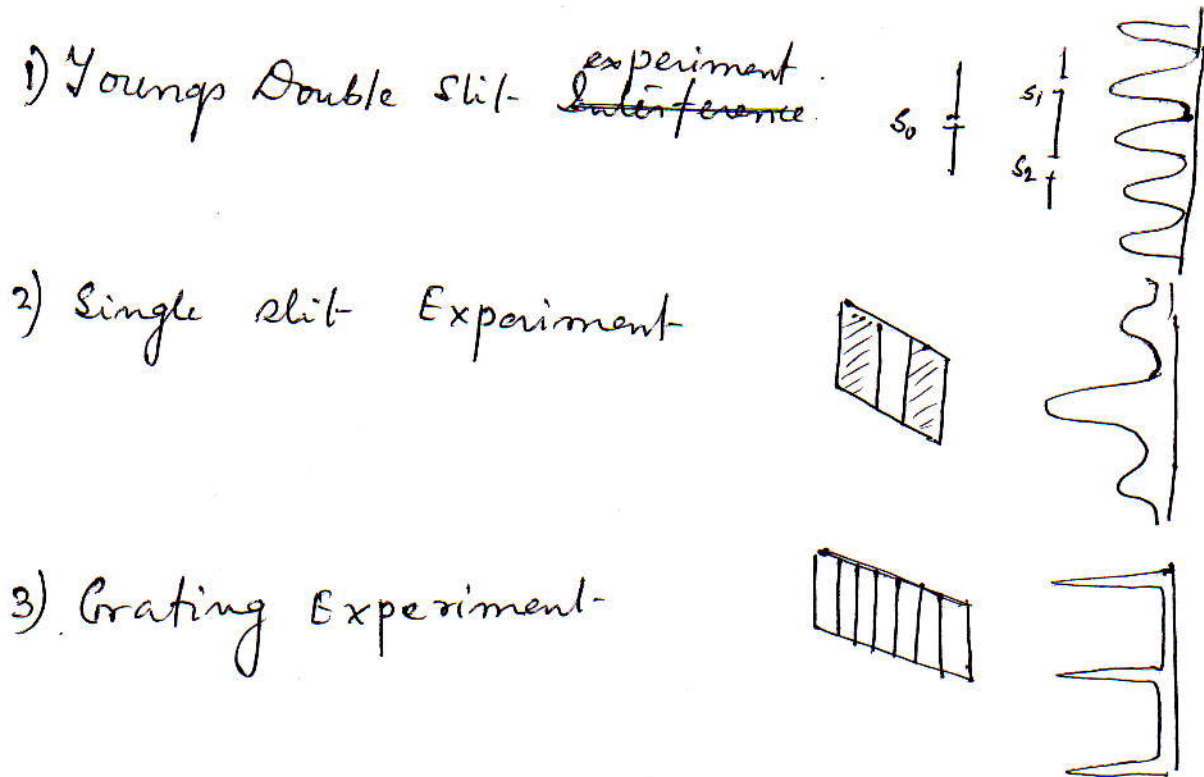 1) Youngs Double slit experiment.
Interference
S₀
S₁
S₂
2) Single slit Experiment
3) Grating Experiment